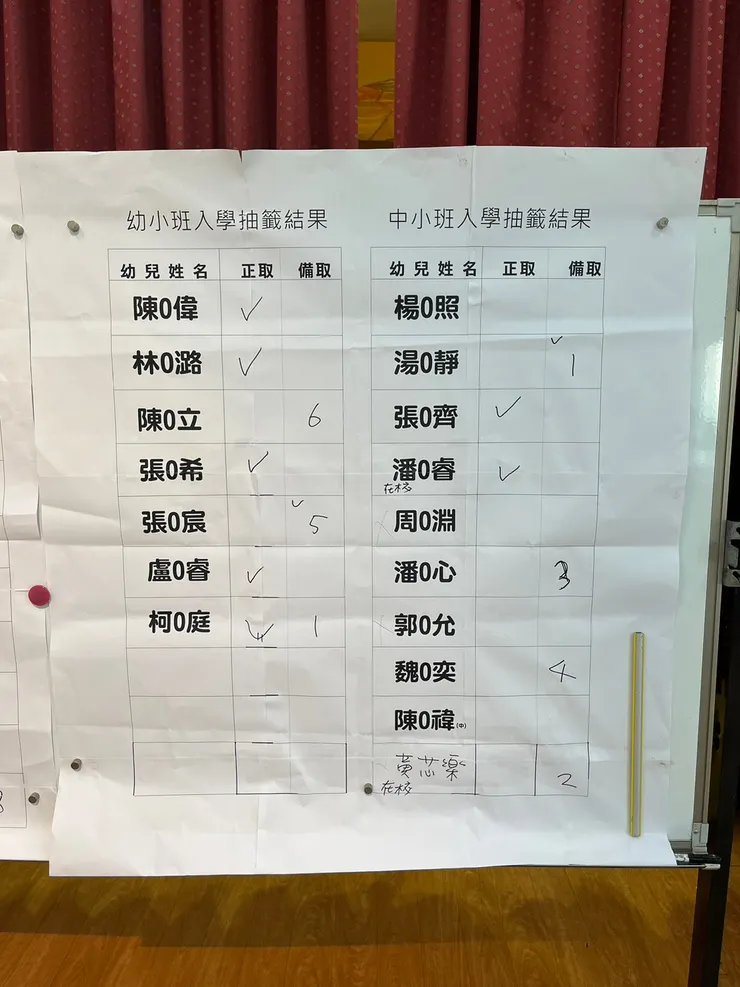 幼小班入學抽籤結果
幼兒姓名 正取 備取
陳O偉 ✓
林O潞 ✓
陳O立 6
張O希 ✓
張O宸 ✓ 5
盧O睿 ✓
柯O庭 ✓ 1
中小班入學抽籤結果
幼兒姓名 正取 備取
楊O照
湯O靜 ✓ 1
張O齊 ✓
潘O睿 ✓
在校
周O淵
潘O心 3
郭O允
魏O奕 4
陳O禕(中)
黃芯樂 2
在校